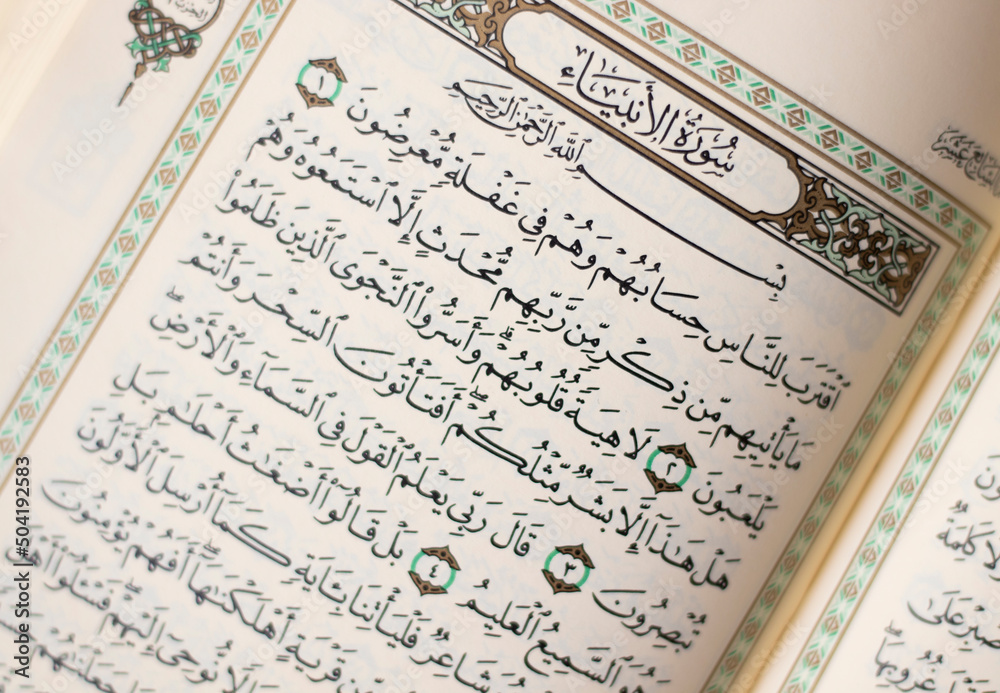 سُورَةُ الأَنبِيَاء
بِسْمِ ٱللَّهِ ٱلرَّحْمَٰنِ ٱلرَّحِيمِ
ٱقْتَرَبَ لِلنَّاسِ حِسَابُهُمْ وَهُمْ فِى غَفْلَةٍ مُّعْرِضُونَ ١
مَا يَأْتِيهِم مِّن ذِكْرٍ مِّن رَّبِّهِم مُّحْدَثٍ إِلَّا ٱسْتَمَعُوهُ وَهُمْ
يَلْعَبُونَ ٢ لَاهِيَةً قُلُوبُهُمْ ۗ وَأَسَرُّوا۟ ٱلنَّجْوَى ٱلَّذِينَ ظَلَمُوا۟
هَلْ هَٰذَآ إِلَّا بَشَرٌ مِّثْلُكُمْ ۖ أَفَتَأْتُونَ ٱلسِّحْرَ وَأَنتُمْ
تُبْصِرُونَ ٣ قَالَ رَبِّى يَعْلَمُ ٱلْقَوْلَ فِى ٱلسَّمَآءِ وَٱلْأَرْضِ ۖ
وَهُوَ ٱلسَّمِيعُ ٱلْعَلِيمُ ٤ بَلْ قَالُوٓا۟ أَضْغَٰثُ أَحْلَٰمٍۭ بَلِ
شَاعِرٌ فَلْيَأْتِنَا بِـَٔايَةٍ كَمَآ أُرْسِلَ ٱلْأَوَّلُونَ
قَرْيَةٍ أَهْلَكْنَٰهَآ ۖ أَفَهُمْ يُؤْمِنُونَ
إِلَّا نُّوحِىٓ إِلَيْهِمْ ۖ فَسْـَٔلُوٓا۟
جَعَلْنَٰهُمْ
كَلِمَةٌ
عَلَىٰ
غُرُوبِهَا
Adobe Stock | #504192583